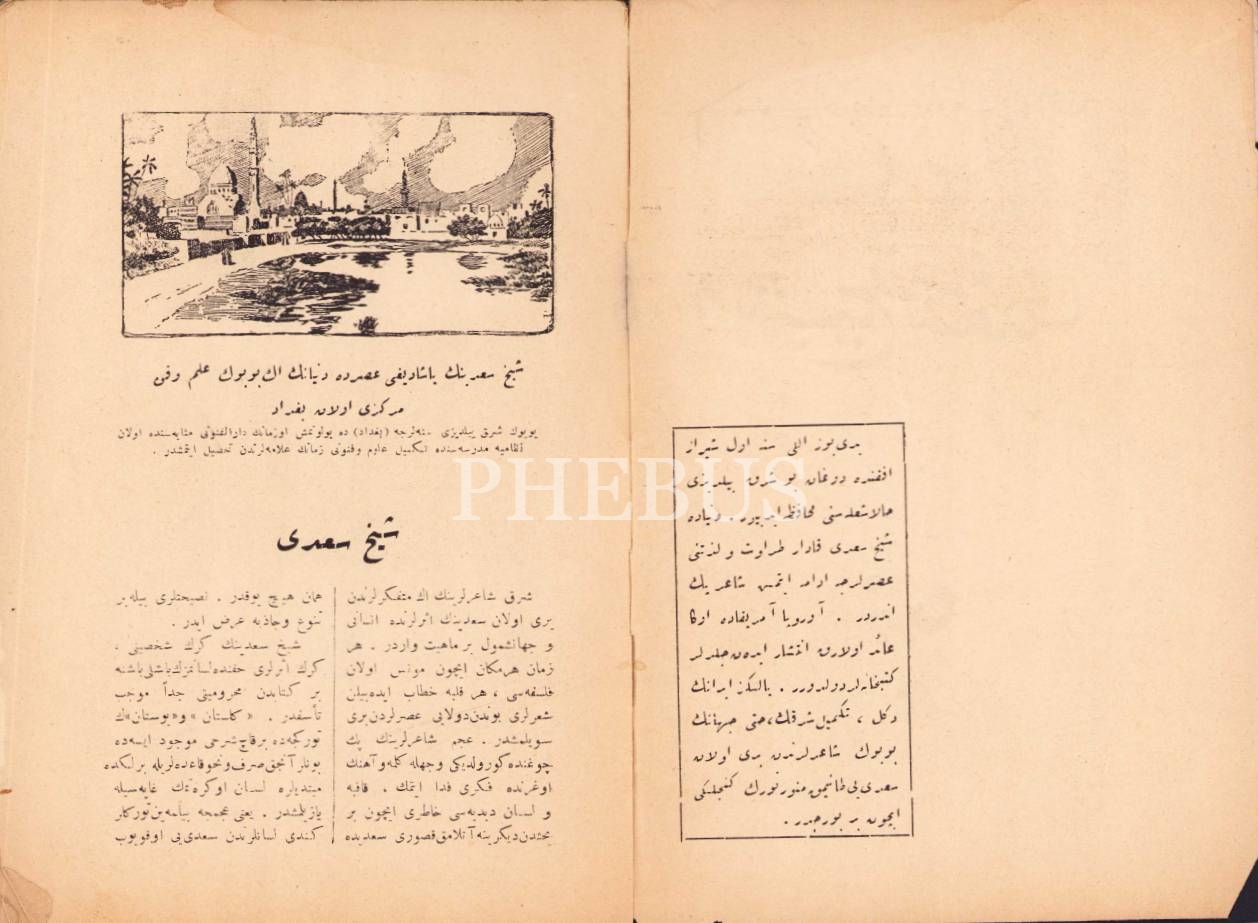 شیخ سعدینك یاشادیغی عصرده دنیانك اك بویوك علم وفن
مركزی اولان بغداد
بویوك شرق ییلدیزی سنه‌لرجه (بغداد) ده بولونمش اوزمانك دارالفنونی مثابه‌سنده اولان
نظامیه مدرسه‌سنده تكمیل علوم وفنونی زمانك علامه‌لرندن تحصیل ایتمشدر .
شیخ سعدی
شرق شاعرلرینك اك متفكرلرندن
بری اولان سعدینك اثرلرنده انسانی
و جهانشمول بر ماهیت واردر . هر
زمان هرمكان ایچون مونس اولان
فلسفه‌سی ، هر قلبه خطاب ایده‌بیلن
شعرلری بوندن دولایی عصرلردن بری
سویلمشدر . عجم شاعرلرینك پك
چوغنده كورولدیكی وجهله كلمه و آهنك
اوغرنده فكری فدا ایتمك . قافیه
و لسان دبدبه‌سی خاطری ایچون بر
بحثدن دیكرینه آتلامق قصوری سعدیده
همان هیچ یوقدر . نصیحتلری بیله بر
تنوع وجاذبه عرض ایدر .
شیخ سعدینك كرك شخصیتی ،
كرك اثرلری حقنده لسانمزك باشلی باشنه
بر كتابدن محرومیتی جداً موجب
تأسفدر . « كلستان » و «بوستان»ك
توركجه‌ده برقاچ شرحی موجود ایسه‌ده
بونلر آنجق صرف و نحو قاعده‌لریله برلكده
مبتدیلره لسان اوكرتمك غایه‌سیله
یازیلمشدر . یعنی عجمجه بیلمه‌ین توركلر
كندی لسانلرندن سعدی‌یی اوقویوب
یدی یوز اللی سنه اول شیراز
افقنده دوغان بو شرق ییلدیزی
حالا شعله‌سنی محافظه ایدییور . دنیاده
شیخ سعدی قادار طراوت و لذتنی
عصرلرجه ادامه ایتمش شاعر پك
اندردر . آوروپا آمریقاده اوكا
عائد اولارق انتشار ایدن جلدلر
كتبخانه‌لر دولدورر . یالكز ایرانك
دكل ، تكمیل شرقك ، حتی جهانك
بویوك شاعرلرندن بری اولان
سعدی‌یی طانیمق منور تورك كنجلكی
ایچون بر بورجدر .
PHEBUS